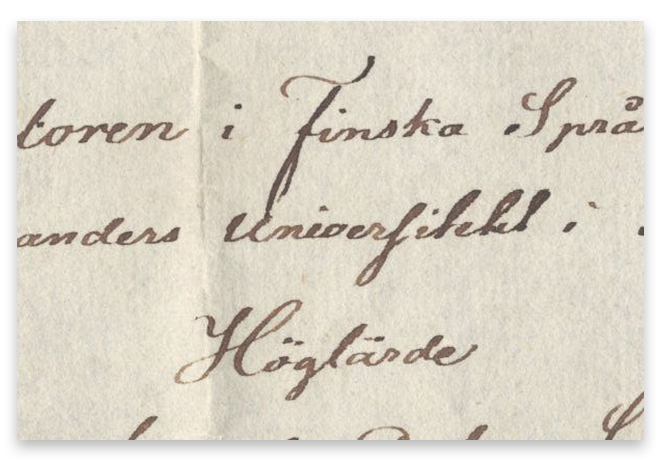 toren i Finska Språ
anders Universitetet i
Höglärde